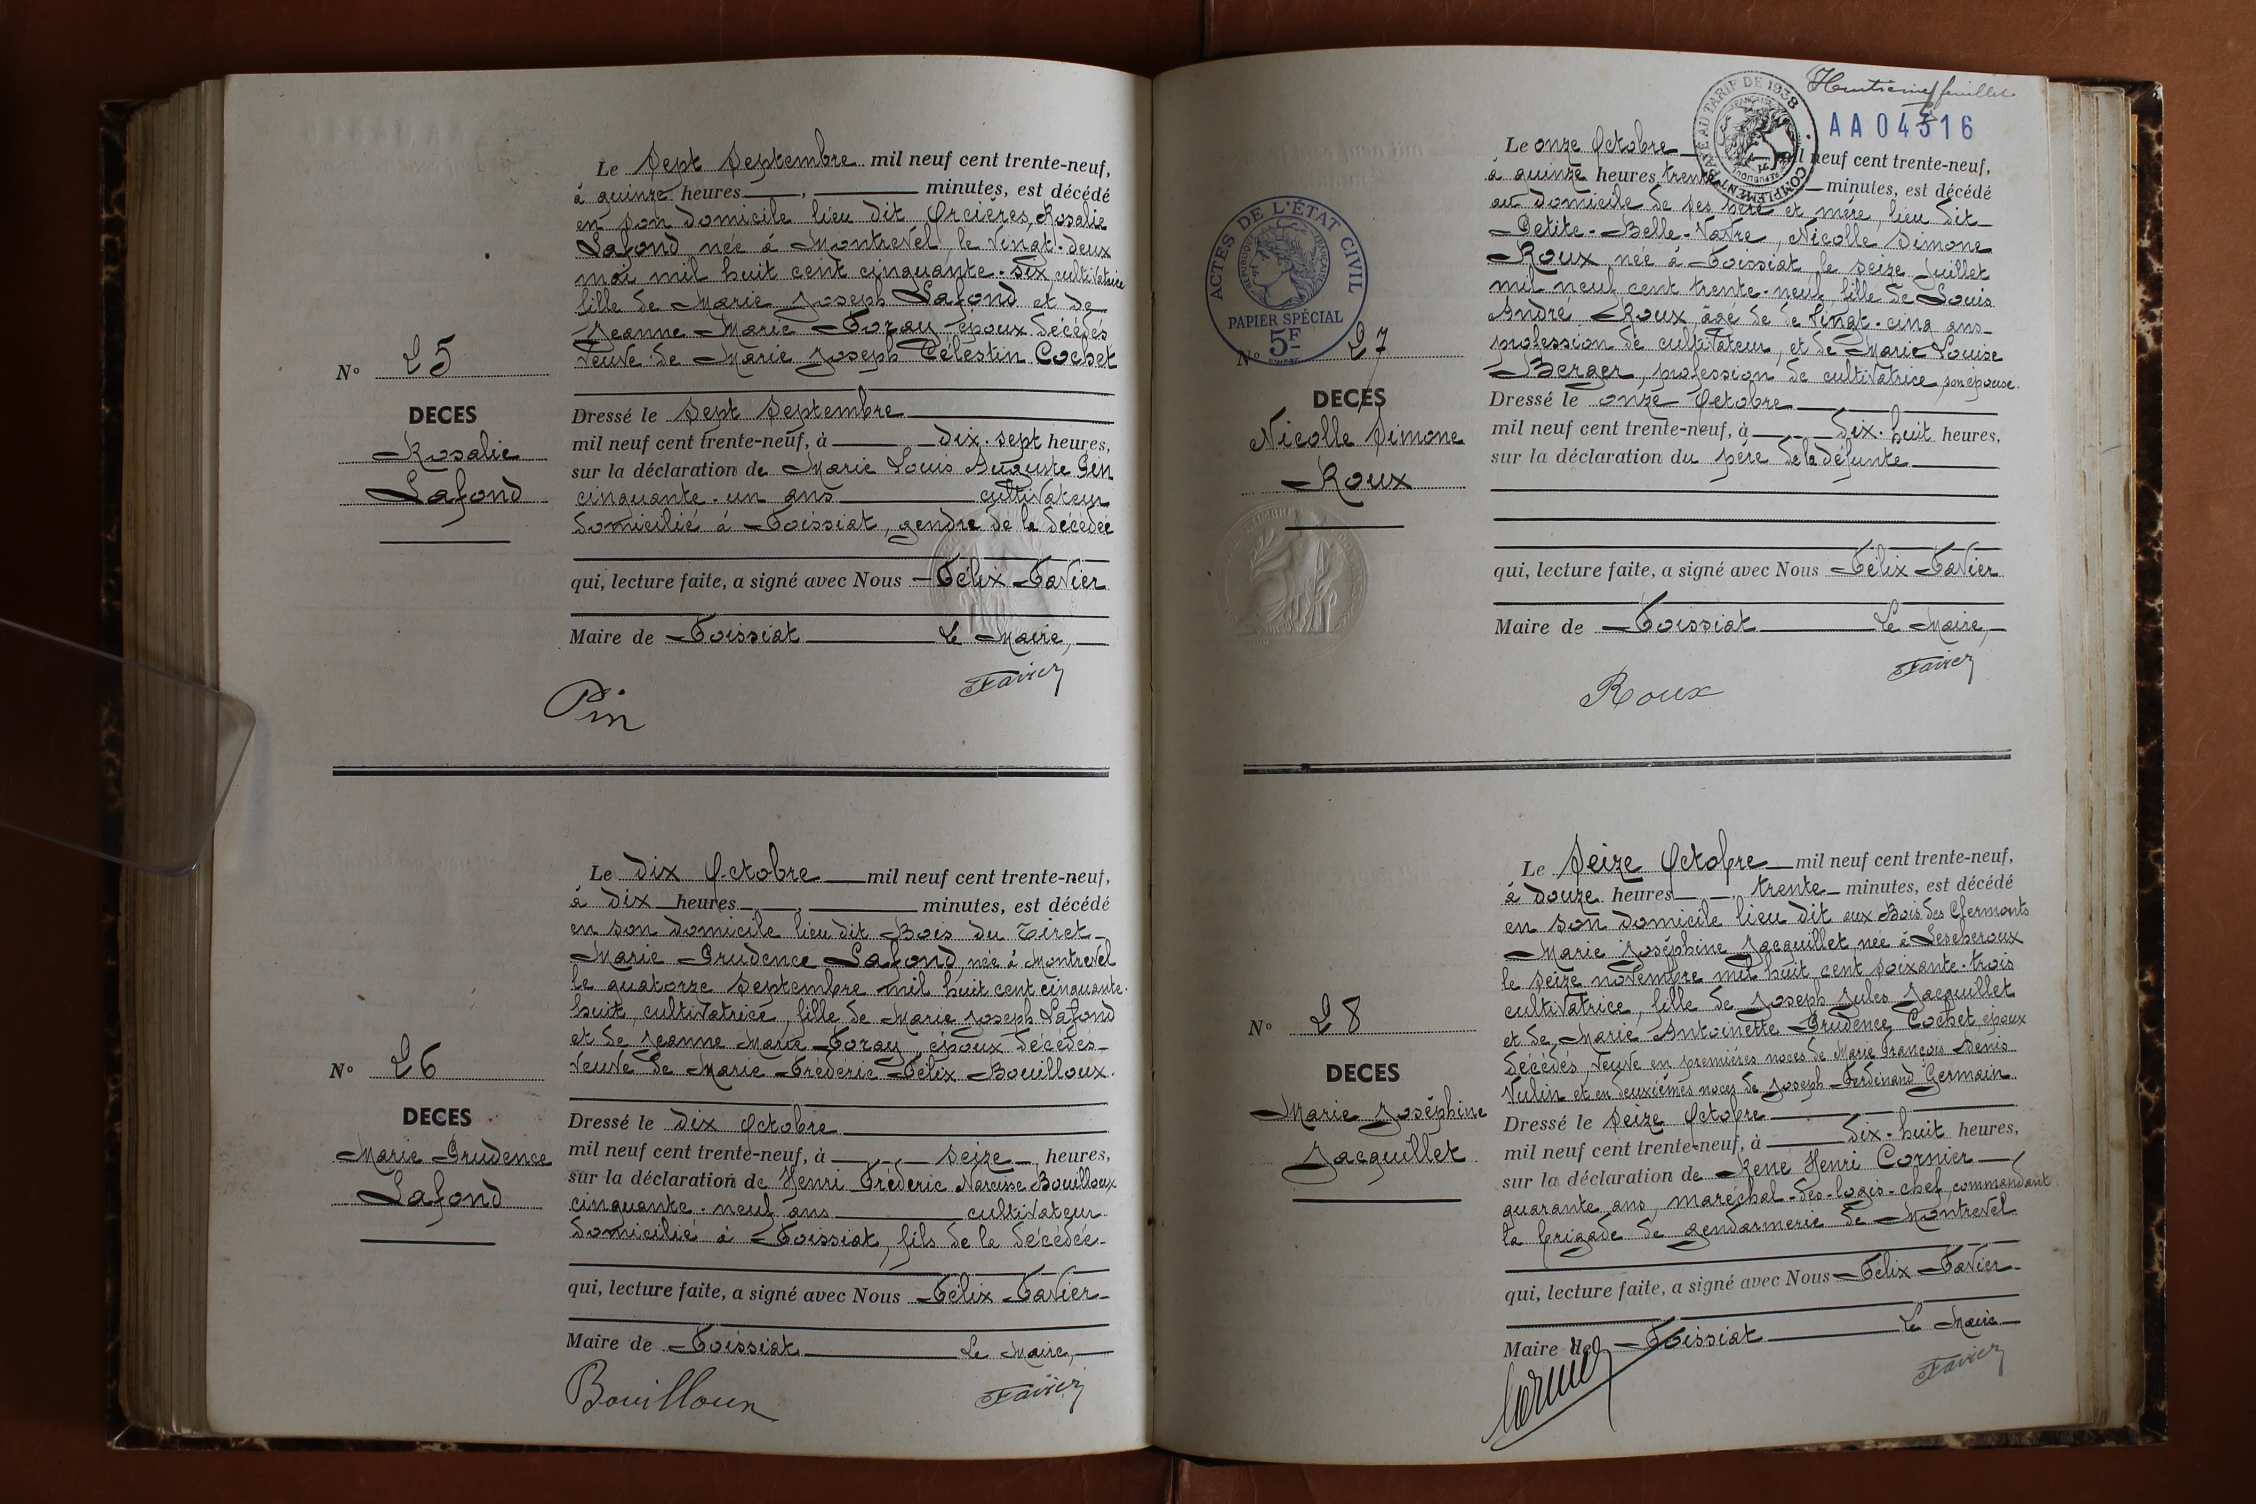 Le Sept Septembre mil neuf cent trente-neuf,
à quinze heures, minutes, est décédé
en son domicile lieu dit Orcières, Rosalie
Lafond née à Montrevel le vingt-deux
mai mil huit cent cinquante-six, cultivatrice
fille de Marie Joseph Lafond et de
Jeanne Marie Foray époux décédés
Veuve de Marie Joseph Célestin Cochet
N° 25
DECES
Rosalie
Lafond
Dressé le Sept Septembre
mil neuf cent trente-neuf, à dix-sept heures,
sur la déclaration de Marie Louis Auguste
cinquante-un ans cultivateur
domicilié à Foissiat, gendre de la décédée
qui, lecture faite, a signé avec Nous Félix Favier
Maire de Foissiat Le Maire,
Pin Favier
Le dix Octobre mil neuf cent trente-neuf,
à dix heures, minutes, est décédé
en son domicile lieu dit Bois du Tiret
Marie Prudence Lafond, née à Montrevel
le quatorze Septembre mil huit cent cinquante-
huit, cultivatrice, fille de Marie Joseph Lafond
et de Jeanne Marie Foray époux décédés
veuve de Marie Fréderic Félix Bouilloux.
N° 26
DECES
Marie Prudence
Lafond
Dressé le dix Octobre
mil neuf cent trente-neuf, à seize heures,
sur la déclaration de Henri Fréderic Narcisse Bouilloux
cinquante-neuf ans cultivateur
domicilié à Foissiat, fils de la décédée
qui, lecture faite, a signé avec Nous Félix Favier
Maire de Foissiat Le Maire,
Bouilloux Favier
Huitième feuillet
AA04316
COMPLEMENT PAYE AU TARIF DE 1938
Le onze Octobre mil neuf cent trente-neuf,
à quinze heures, trente minutes, est décédé
au domicile de ses père et mère, lieu dit
Petite-Belle-Vavre, Nicolle Simone
Roux, née à Foissiat le seize Juillet
mil neuf cent trente-neuf, fille de Louis
André Roux, age de de vingt-cinq ans
profession de cultivateur, et de Marie Louise
Berger, profession de cultivatrice, son épouse.
ACTES DE L'ÉTAT CIVIL
RÉPUBLIQUE FRANÇAISE
PAPIER SPÉCIAL
5F
N° 27
DECES
Nicolle Simone
Roux
Dressé le onze Octobre
mil neuf cent trente-neuf, à dix-huit heures,
sur la déclaration du père de la défunte
qui, lecture faite, a signé avec Nous Félix Favier
Maire de Foissiat Le Maire,
Roux Favier
Le Seize Octobre mil neuf cent trente-neuf,
à douze heures, trente minutes, est décédé
en son domicile lieu dit aux Bois des Clermonts
Marie Joséphine Jacquillet, née à Lescheroux
le seize novembre mil huit cent soixante-trois
cultivatrice, fille de Joseph Jules Jacquillet
et de Marie Antoinette Prudence Cochet epoux
décédés, Veuve en premières noces de Marie François Denis
Vulin et en deuxièmes noces de Joseph Ferdinand Germain
N° 28
DECES
Marie Joséphine
Jacquillet
Dressé le seize Octobre
mil neuf cent trente-neuf, à dix-huit heures,
sur la déclaration de René Henri Cornier
quarante ans, maréchal-des-logis-chef, commandant
la brigade de gendarmerie de Montrevel
qui, lecture faite, a signé avec Nous Félix Favier
Maire de Foissiat Le Maire
Favier